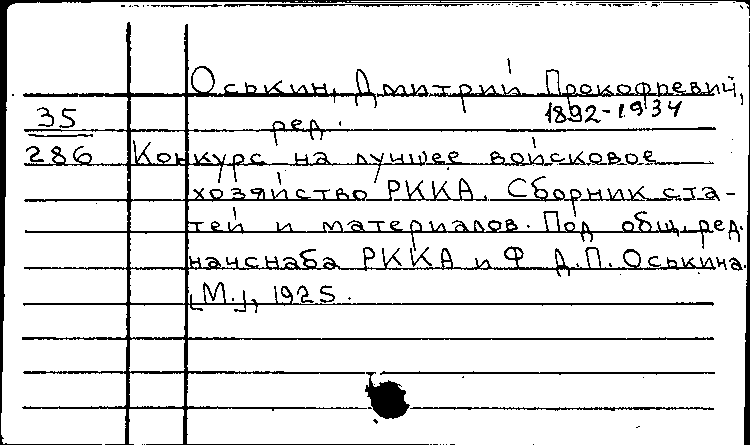 Оськин, Дмитрий Прокофьевич,
1892-1934
35 ред.
286 Конкурс на лучшее войсковое
хозяйство РККА. Сборник ста-
тей и материалов. Под общ. ред.
начснаба РККА и Ф Д.П. Оськина.
[М.], 1925.